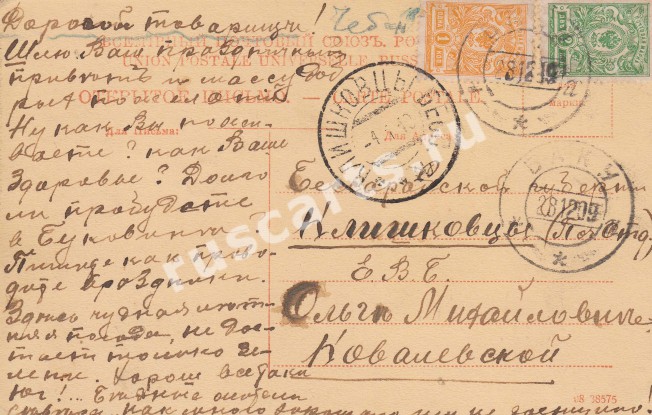 Дорогой товарищ!
Шлю Вам праздничный
приветъ и массу доб-
рыхъ пожеланій
Ну какъ Вы пожи-
ваете? какъ Ваше
здоровье? Долго
ли пробудете
в Буковинѣ?
Пишите какъ прово-
дите праздники.
Здесь чудная лѣт-
няя погода, не дос-
таетъ только зе-
лени. Хорошъ всетаки
югъ!...
ВСЕМІРНЫЙ ПОЧТОВЫЙ СОЮЗЪ. РОССІЯ
UNION POSTALE UNIVERSELLE. RUSSIE
ОТКРЫТОЕ ПИСЬМО — CARTE POSTALE
Для письма:
Для
марки
КИШКОВЦЫ БЕСС.
БАКУ
281209
БАКУ
281209
Бессарабской губерніи
Клишковцы
Е. В. Б.
Ольгѣ Михайловнѣ
Ковалевской
38575
ruscards.ru